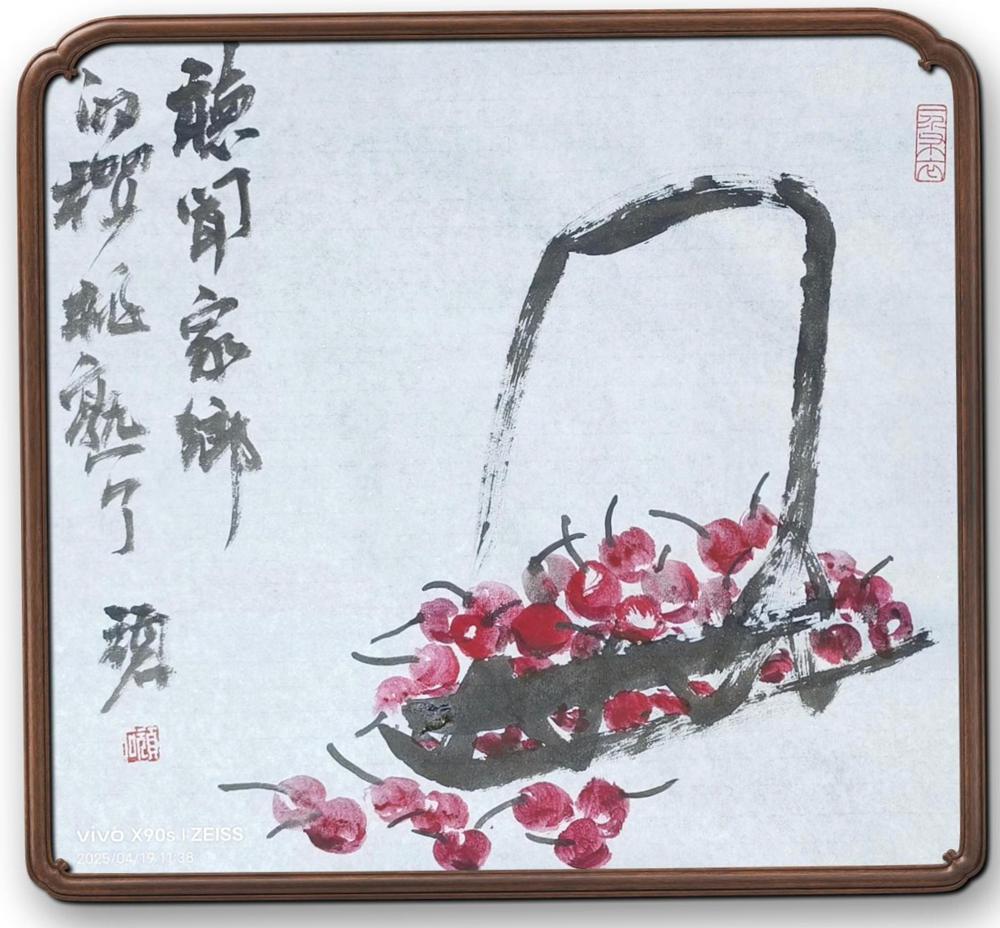 聽聞家鄉
的櫻桃熟了
vivo X90s | ZEISS
2025/04/19 11:38